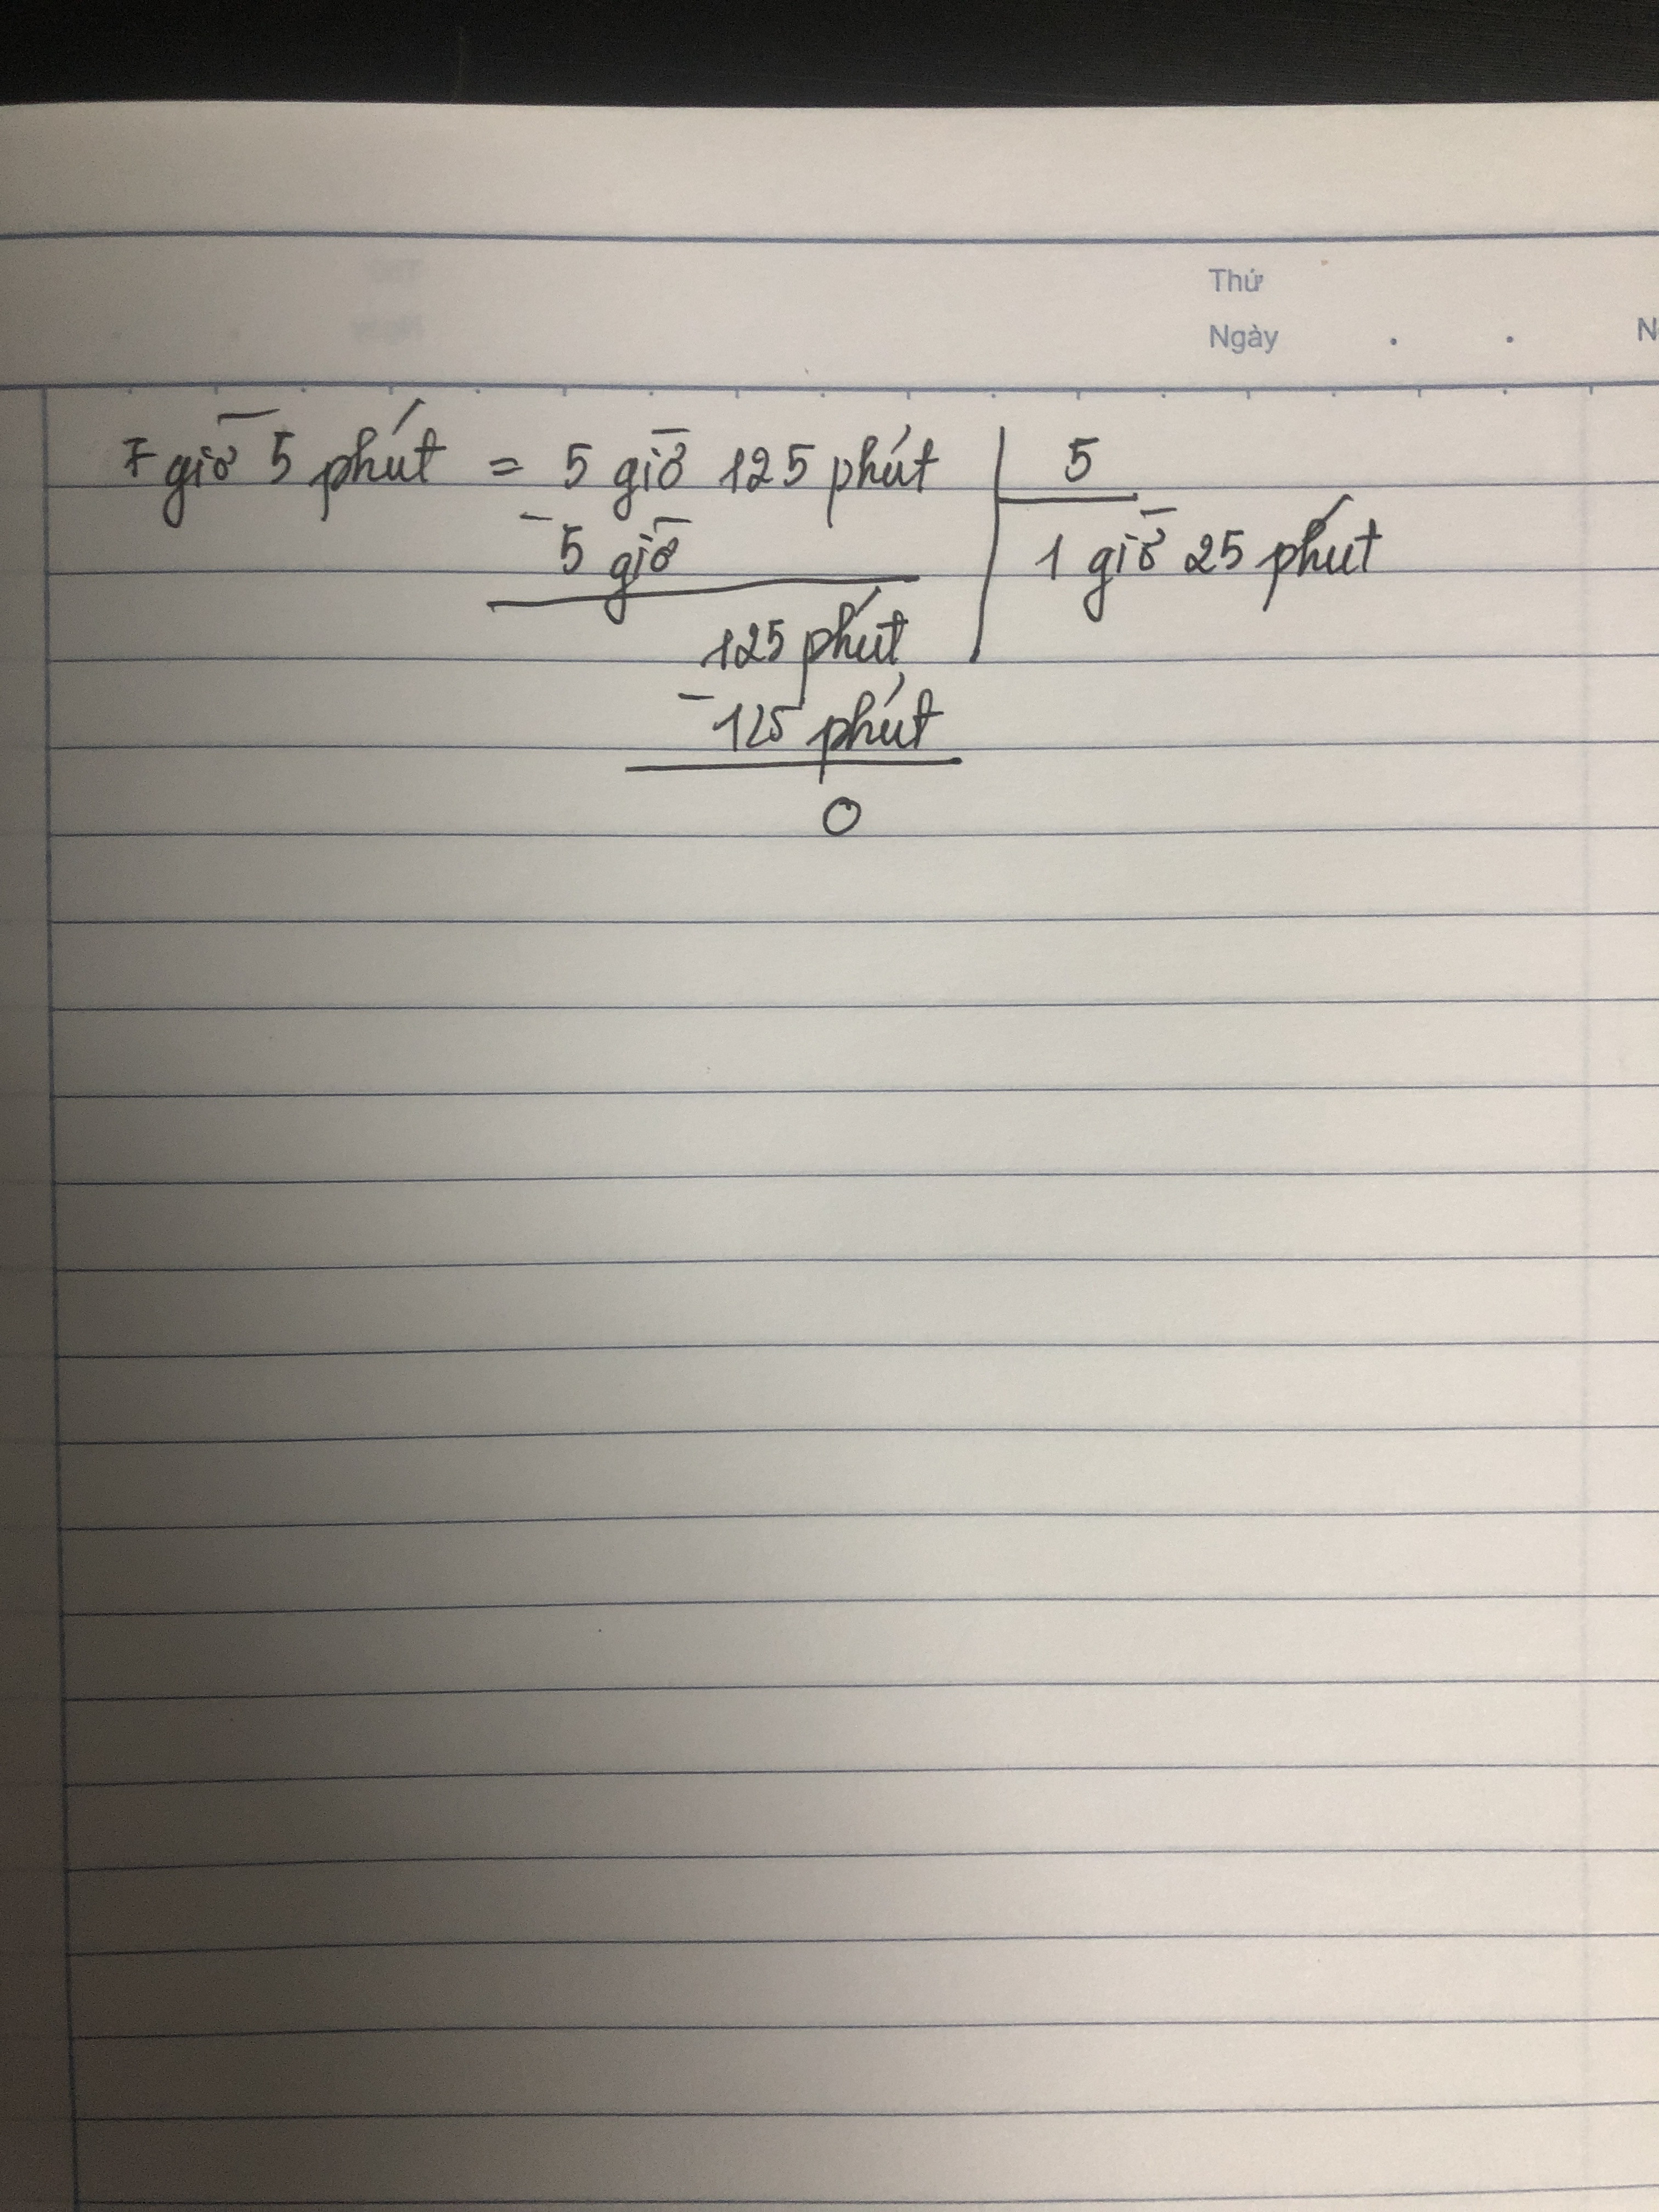 Thứ
Ngày . . N
7 giờ 5 phút = 5 giờ 125 phút | 5
- 5 giờ 1 giờ 25 phút
125 phút
- 125 phút
0